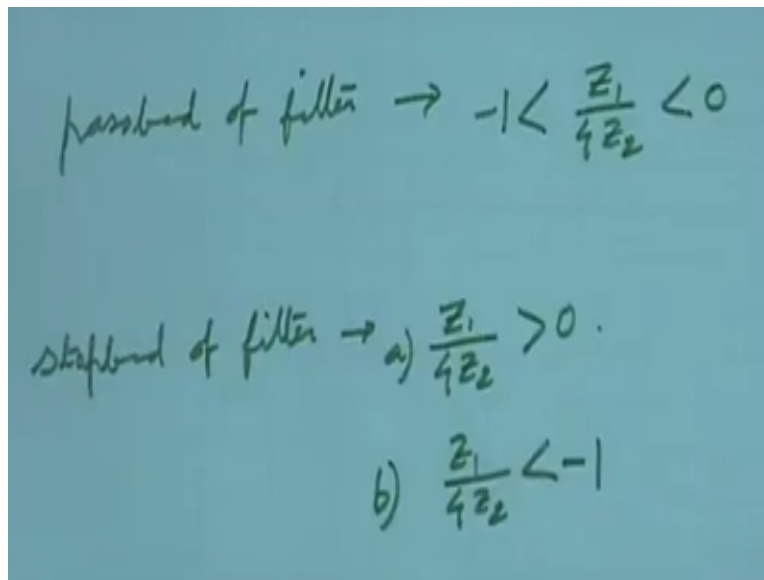 passband of filter → -1 < Z₁/4Z₂ < 0
stopband of filter → a) Z₁/4Z₂ > 0.
b) Z₁/4Z₂ < -1